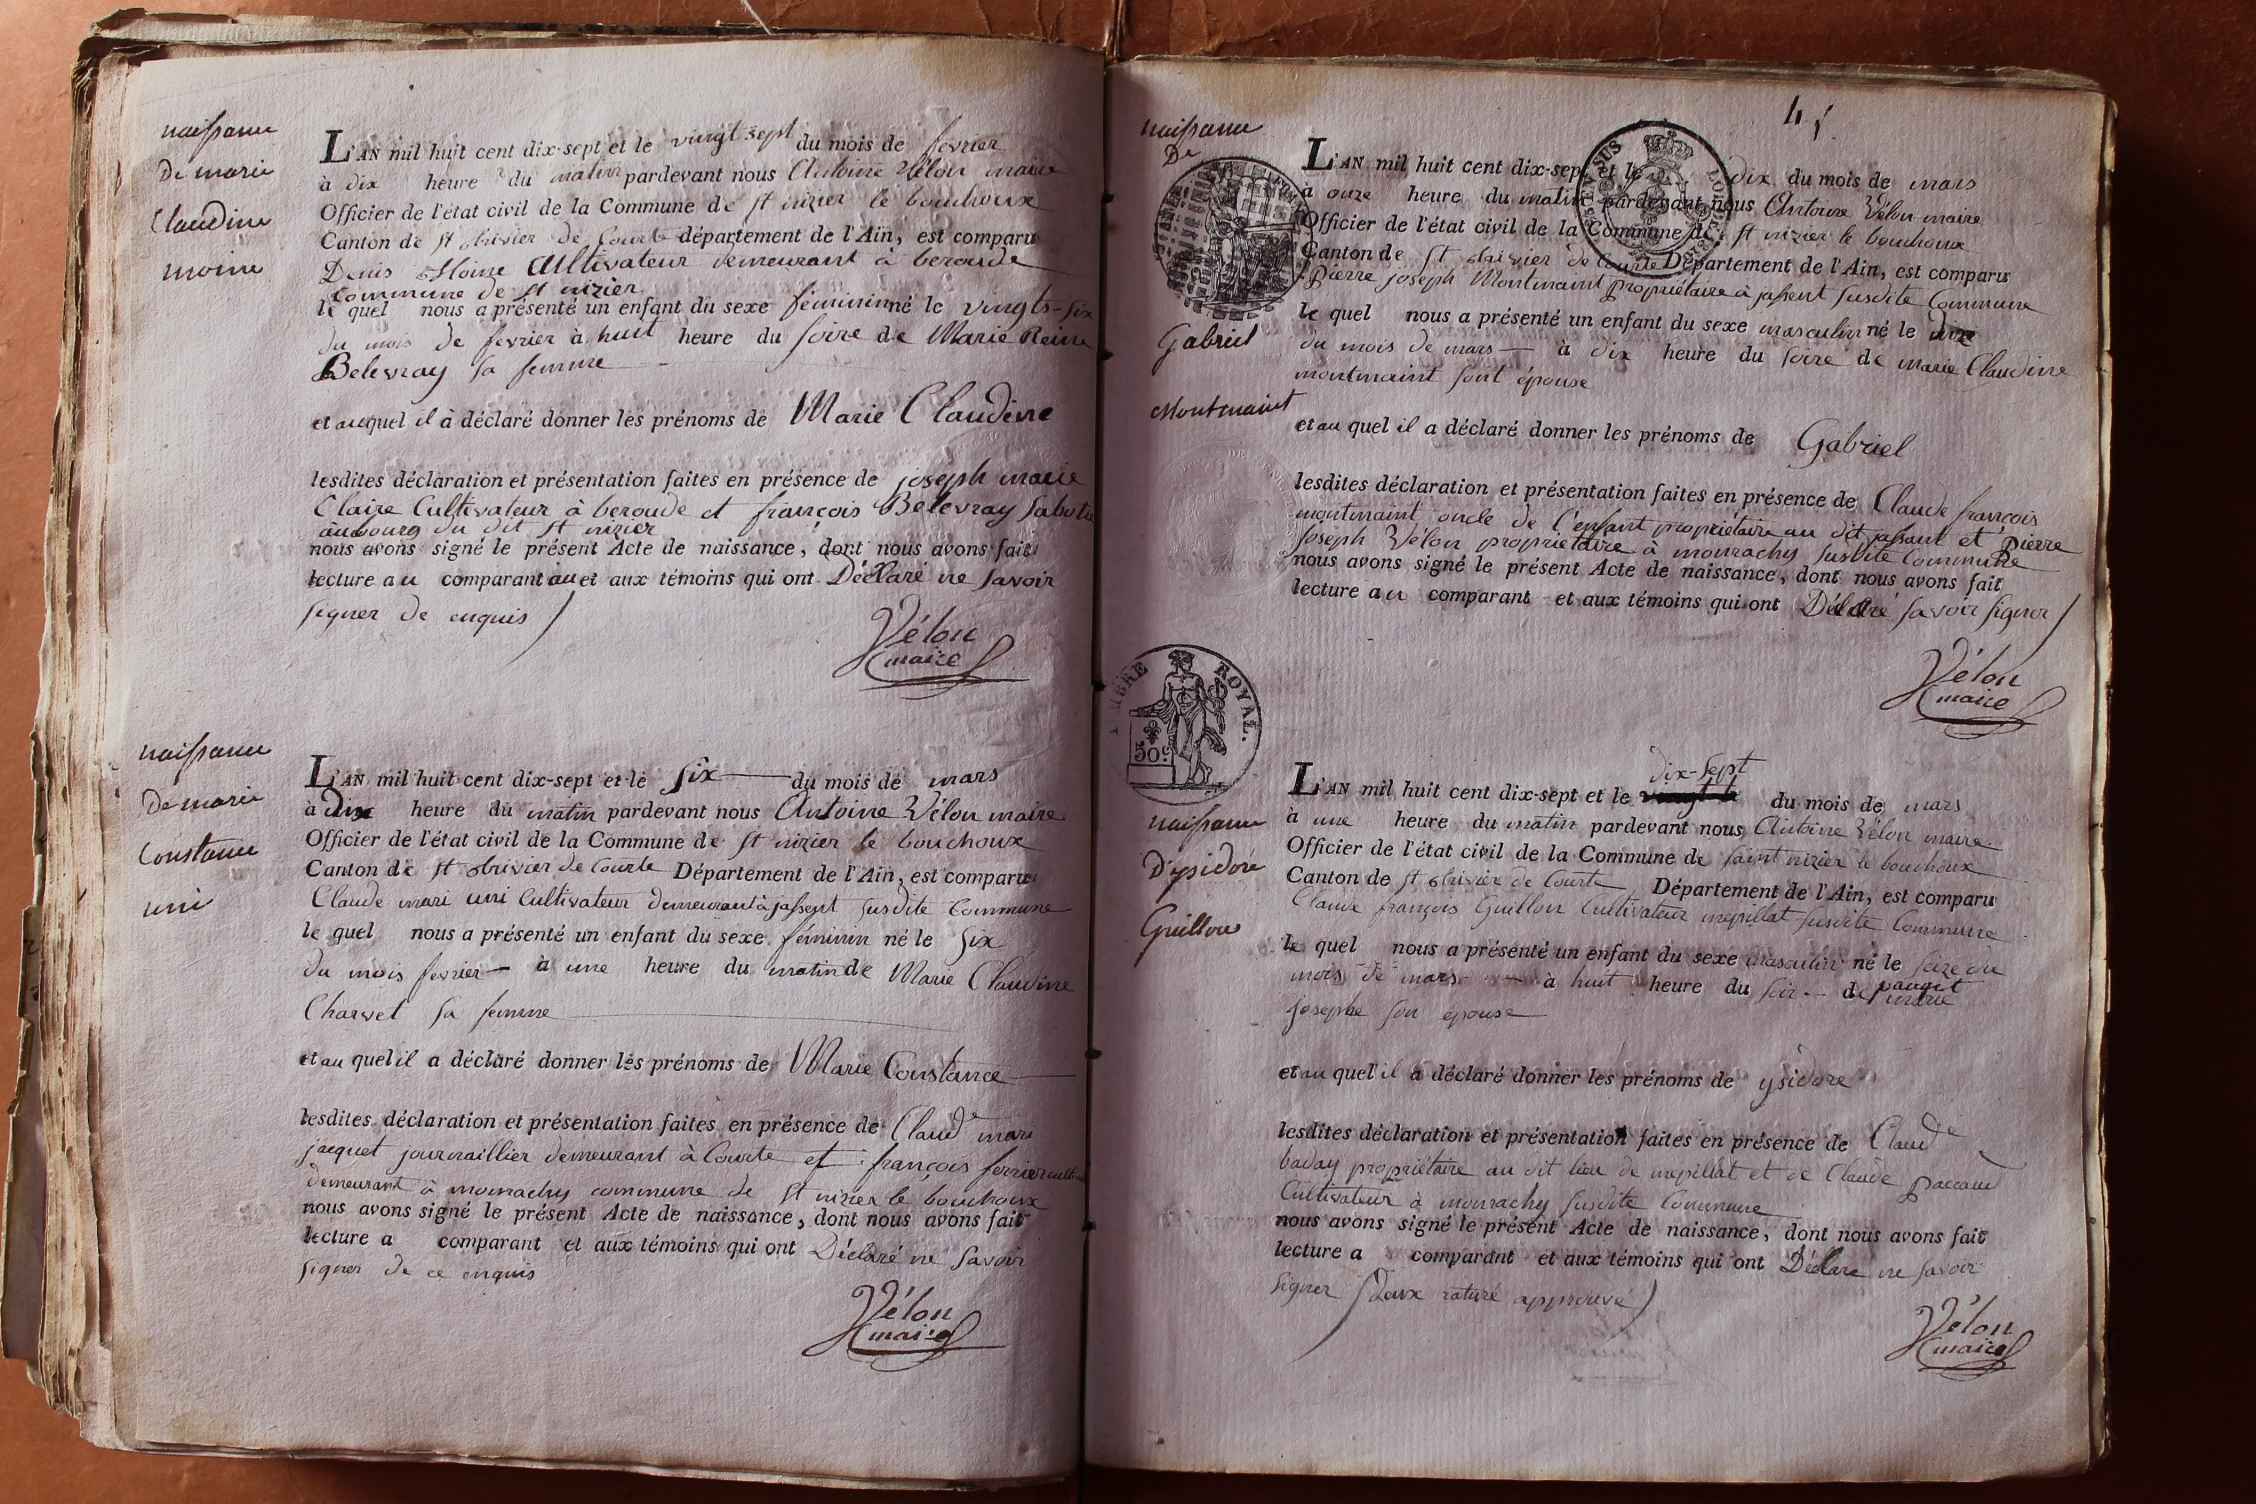 naissance
De marie
Claudine
moine
L'AN mil huit cent dix-sept et le vingt sept du mois de fevrier
à dix heure du matin pardevant nous Antoine Vélon maire
Officier de l'état civil de la Commune de st nizier le bouchoux
Canton de st trivier de Courte département de l'Ain, est comparu
Denis Moine Cultivateur demeurant à beroude
Commune de st nizier
le quel nous a présenté un enfant du sexe féminin né le vingts-six
du mois de fevrier à huit heure du soire de Marie Reine
Belevray sa femme
et auquel il à déclaré donner les prénoms de Marie Claudine
lesdites déclaration et présentation faites en présence de joseph marie
Claire Cultivateur à beroude et françois Belevray Sabotie
au bourg du dit st nizier
nous avons signé le présent Acte de naissance, dont nous avons fait
lecture au comparant et aux témoins qui ont Déclaré ne savoir
signer de enquis
Vélon
maire
naissance
De marie
Constance
uni
L'AN mil huit cent dix-sept et le six du mois de mars
à dix heure du matin pardevant nous Antoine Vélon maire
Officier de l'état civil de la Commune de st nizier le bouchoux
Canton de st trivier de Courte Département de l'Ain, est comparu
Claude mari uni Cultivateur demeurant à jassent susdite Commune
le quel nous a présenté un enfant du sexe féminin né le six
du mois fevrier à une heure du matin de Marie Claudine
Charvet sa femme
et au quel il a déclaré donner les prénoms de Marie Constance
lesdites déclaration et présentation faites en présence de Claude mari
jacquet journaillier demeurant à Courte et françois ferrier cult
demeurant à monrachy commune de st nizier le bouchoux
nous avons signé le présent Acte de naissance, dont nous avons fait
lecture a comparant et aux témoins qui ont Déclaré ne savoir
signer de ce enquis
Vélon
maire
45
naissance
De
Gabriel
Montmaint
L'AN mil huit cent dix-sept et le dix du mois de mars
à onze heure du matin pardevant nous Antoine Vélon maire
Officier de l'état civil de la Commune de st nizier le bouchoux
Canton de st trivier de Courte Département de l'Ain, est comparu
Pierre joseph Montmaint propriétaire à jassent susdite Commune
le quel nous a présenté un enfant du sexe masculin né le
du mois de mars à dix heure du soire de marie Claudine
montmaint sont épouse
et au quel il a déclaré donner les prénoms de Gabriel
lesdites déclaration et présentation faites en présence de Claude françois
montmaint oncle de l'enfant propriétaire au dit jassant et pierre
joseph Vélon propriétaire à monrachy susdite Commune
nous avons signé le présent Acte de naissance, dont nous avons fait
lecture au comparant et aux témoins qui ont Déclaré savoir signer
Vélon
maire
TIMBRE ROYAL.
50 c
naissance
D'ysidore
Guillon
dix-sept
L'AN mil huit cent dix-sept et le du mois de mars
à une heure du matin pardevant nous Antoine Vélon maire
Officier de l'état civil de la Commune de saint nizier le bouchoux
Canton de st trivier de Courte Département de l'Ain, est comparu
Claude françois Guillon Cultivateur mepillat susdite Commune
le quel nous a présenté un enfant du sexe masculin né le seize du
mois de mars à huit heure du soir de marie
josephe son épouse
et au quel il a déclaré donner les prénoms de ysidore
lesdites déclaration et présentation faites en présence de Claude
baday propriétaire au dit lieu de mepillat et de Claude paccaud
Cultivateur à monrachy susdite Commune
nous avons signé le présent Acte de naissance, dont nous avons fait
lecture a comparant et aux témoins qui ont Déclaré ne savoir
signer (Deux raturé approuvé)
Vélon
maire